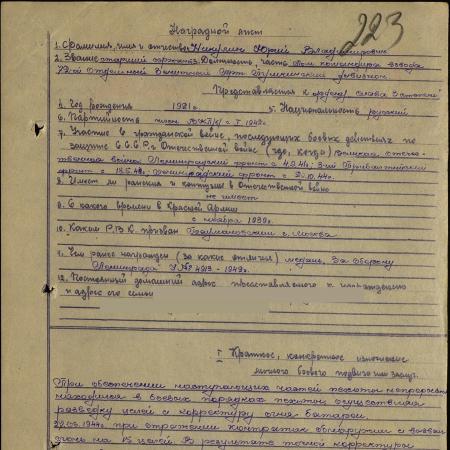 223
Наградной лист
1. Фамилия, имя и отчество Юрий Владимирович
2. Звание старший сержант Должность, часть Пом. командира взвода
Отдельный Арт. дивизион
Представляется к ордену Слава степени
4. Год рождения 1921 г. 5. Национальность русский
6. Партийность член ВКП(б) с 1942 г.
7. Участие в гражданской войне, последующих боевых действиях по
защите С.С.С.Р. и Отечественной войне (где, когда) Великая отече-
ственная война Ленинградский фронт с
фронт с Ленинградский фронт с
8. Имеет ли ранения и контузии в Отечественной войне
не имеет
9. С какого времени в Красной Армии
с ноября 1939 г.
10. Каким Р.В.К. призван Бауманским г. Москва
11. Чем ранее награжден (за какие отличия) медаль За оборону
Ленинграда
12. Постоянный домашний адрес представляемого к награждению
и адрес его семьи
I Краткое, конкретное изложение
личного боевого подвига или заслуг.
При обеспечении наступающих частей пехоты непрерывно
находился в боевых порядках пехоты осуществляя
разведку целей и корректуру огня батареи.
при отражении контратак обнаружил и вызвал
огонь на 15 целей. В результате точной корректуры